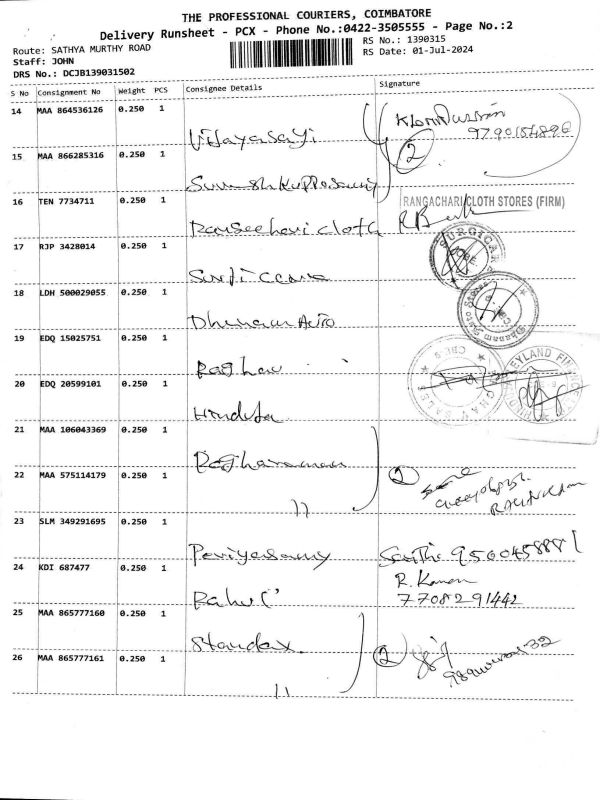 THE PROFESSIONAL COURIERS, COIMBATORE
Delivery Runsheet - PCX - Phone No.:0422-3505555 - Page No.:2
Route: SATHYA MURTHY ROAD
Staff: JOHN
DRS No.: DCJB139031502
RS No.: 1390315
RS Date: 01-Jul-2024
S No Consignment No Weight PCS Consignee Details Signature
14 MAA 864536126 0.250 1
Vijayasayi
2
15 MAA 866285316 0.250 1
16 TEN 7734711 0.250 1
RANGACHARI CLOTH STORES (FIRM)
cloth
17 RJP 3428014 0.250 1
18 LDH 500029055 0.250 1
Dhanam Auto
19 EDQ 15025751 0.250 1
Raghav
20 EDQ 20599101 0.250 1
Hinduja
21 MAA 106043369 0.250 1
Raghuraman
22 MAA 575114179 0.250 1
11
2
23 SLM 349291695 0.250 1
Periyasamy
24 KDI 687477 0.250 1
R. Kannan
Rahul
7708291442
25 MAA 865777160 0.250 1
Standax
26 MAA 865777161 0.250 1
2
11